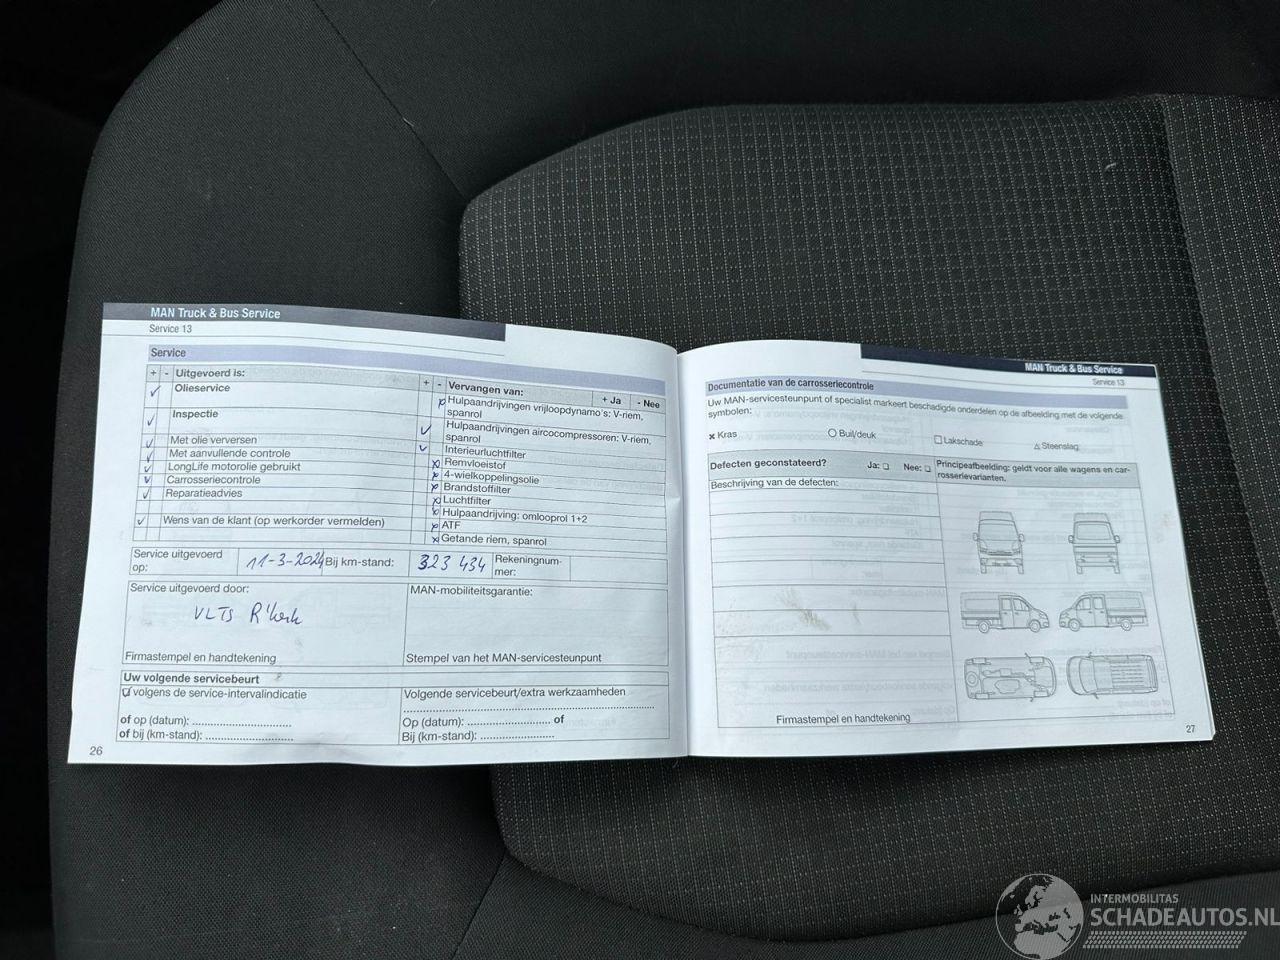 MAN Truck & Bus Service
Service 13
Service
+ - Uitgevoerd is:
Olieservice
Inspectie
Met olie verversen
Met aanvullende controle
LongLife motorolie gebruikt
Carrosseriecontrole
Reparatieadvies
Wens van de klant (op werkorder vermelden)
+ - Vervangen van: + Ja - Nee
Hulpaandrijvingen vrijloopdynamo's: V-riem,
spanrol
Hulpaandrijvingen aircocompressoren: V-riem,
spanrol
Interieurluchtfilter
Remvloeistof
4-wielkoppelingsolie
Brandstoffilter
Luchtfilter
Hulpaandrijving: omlooprol 1+2
ATF
Getande riem, spanrol
Service uitgevoerd
op:
11-3-2024
Bij km-stand:
323 434
Rekeningnum-
mer:
Service uitgevoerd door:
VLTS R'kerk
Firmastempel en handtekening
MAN-mobiliteitsgarantie:
Stempel van het MAN-servicesteunpunt
Uw volgende servicebeurt
volgens de service-intervalindicatie
of op (datum): ..............................
of bij (km-stand): ..........................
Volgende servicebeurt/extra werkzaamheden
Op (datum): ......................... of
Bij (km-stand): ......................
26
MAN Truck & Bus Service
Service 13
Documentatie van de carrosseriecontrole
Uw MAN-servicesteunpunt of specialist markeert beschadigde onderdelen op de afbeelding met de volgende
symbolen:
x Kras
○ Buil/deuk
□ Lakschade
△ Steenslag
Defecten geconstateerd? Ja: □ Nee: □
Beschrijving van de defecten:
Principeafbeelding: geldt voor alle wagens en car-
rosserievarianten.
Firmastempel en handtekening
27
INTERMOBILITAS
SCHADEAUTOS.NL